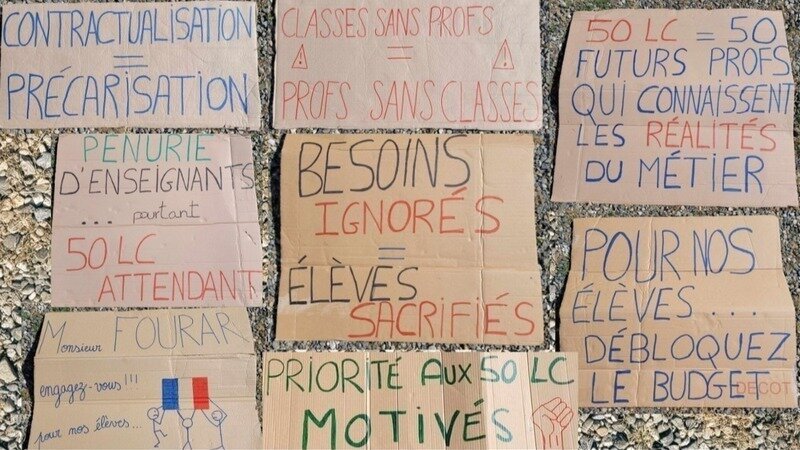 CONTRACTUALISATION
=
PRÉCARISATION
CLASSES SANS PROFS
=
PROFS SANS CLASSES
50 LC = 50
FUTURS PROFS
QUI CONNAISSENT
LES RÉALITÉS
DU MÉTIER
PENURIE
D'ENSEIGNANTS
... pourtant
50 LC
ATTENDANT
BESOINS
IGNORÉS
=
ÉLÈVES
SACRIFIÉS
POUR NOS
ÉLÈVES ...
DÉBLOQUEZ
LE BUDGET
DECOT
Monsieur FOURAR
engagez-vous !!!
pour nos élèves...
PRIORITÉ AUX 50 LC
MOTIVÉS